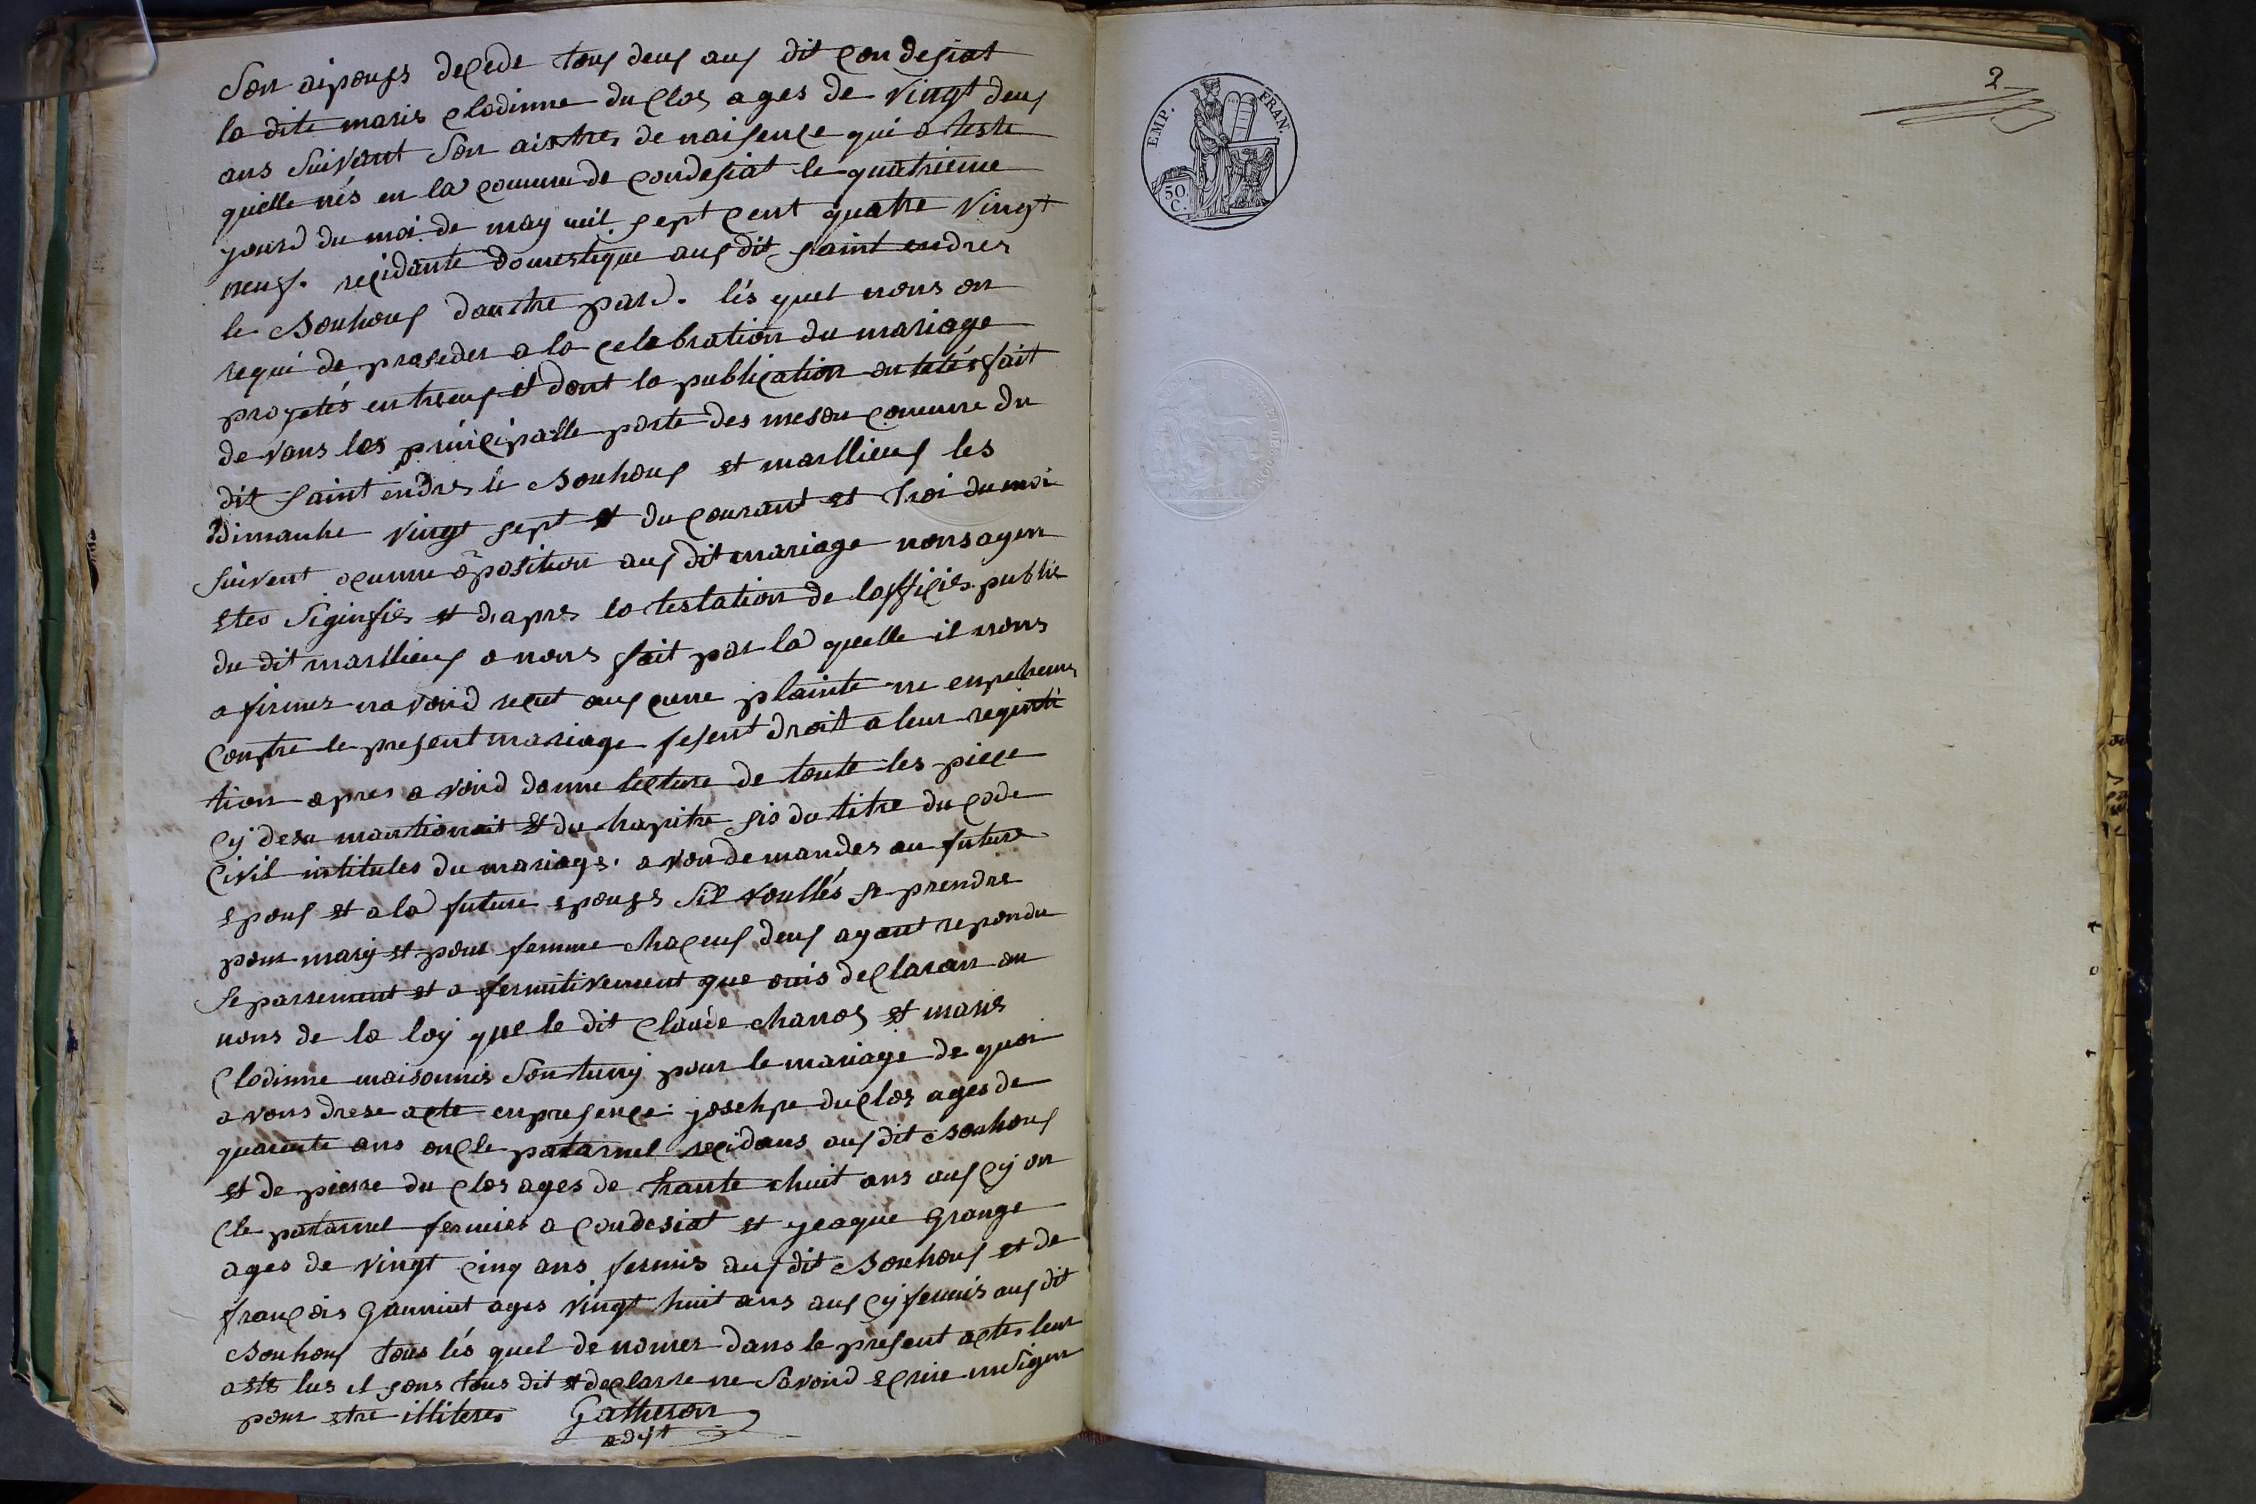 Son aipouses decede tous deus aus dit Condesiat
la dite marie Clodinne du Clos ages de vingt deus
ans suivant son aixtre de naisence qui a teste
quelle nés en la Comune de Condesiat le quatrieme
jourd du moi de may mil sept cent quatre vingt
neuf. residante Domestique aus dit saint endres
le Bouhous dautre pard. lés quel nous on
requi de proseder a la celebration du mariage
proyetés entreus et dont la publication on tetés fait
de vans les principalle porte des meson Comune du
dit saint endres le Bouhous et marllieus les
Dimanhe vingt sept et du Courant et troi du moi
suivent ocunne ôposition aus dit mariage nons ayen
etes siginfies et d'apres la testation de lofficies public
du dit marllieus a nous fait par la quelle il nous
afirmer navoird recut aus cune plainte ne enpechemen
Contre le present mariage fesent droit a leur requisi
tion apres avoird donne lecture de toute les piece
Cy desu mantionait et du hapitre sis du titre du Code
Civil intitules du mariage. avon demandes au future
epous et a la future epouses sil voullés se prendre
pour mary et pour femme chacus deus ayant repondu
separrement et a fermitivement que ouis declaron au
nons de la loy que le dit Claude Charros et marie
Clodinne maisonnis sontuny pour le mariage de quoi
avons drese acte en presence: josehpe duclos ages de
quarente ans oncle patarnel recidans aus dit Bouhous
et de pierre du Clos ages de trante huit ans aus cy on
Cle patarnel fermier a Condesiat et jeaque Grange
ages de vingt cinq ans fermis aus dit Bouhous et de
francois Gauniut ages vingt huit ans aus cy fermis aus dit
Bouhous tous lés quel de nomer dans le present actes leur
a ete lus il sons tous dit et declarre ne savoird ecrire ni signer
pour etre illiteres Gatheron
adjt
2
EMP. FRAN.
50 C.